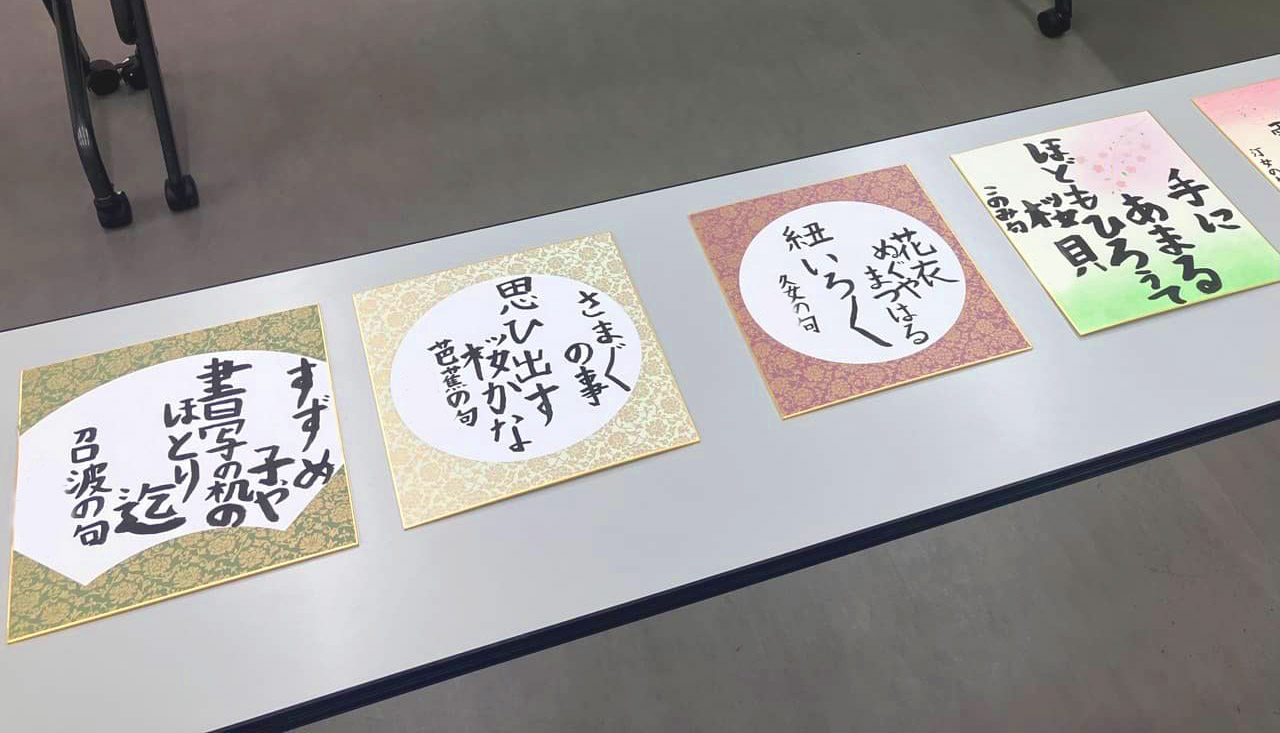 すずめ
子や
書写の机の
ほとり
迄
召波の句
さま〲
の事
思ひ出す
桜かな
芭蕉の句
花衣
ぬぐやまつはる
紐いろ〱
久女の句
手に
あまる
ほどもひろうて
桜貝
このみ句
汀女の